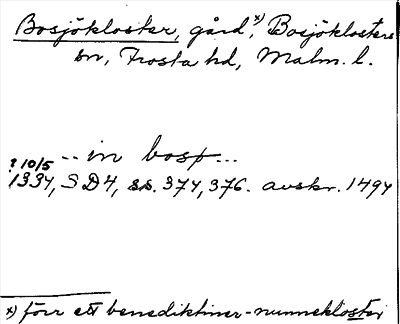 Bosjökloster, gård,x) Bosjöklosters
sn, Frosta hd, Malm. l.
... in bosp...
? 10/5
1334, SD4, ss. 374, 376. avskr. 1494
x) förr ett benediktiner-nunnekloster